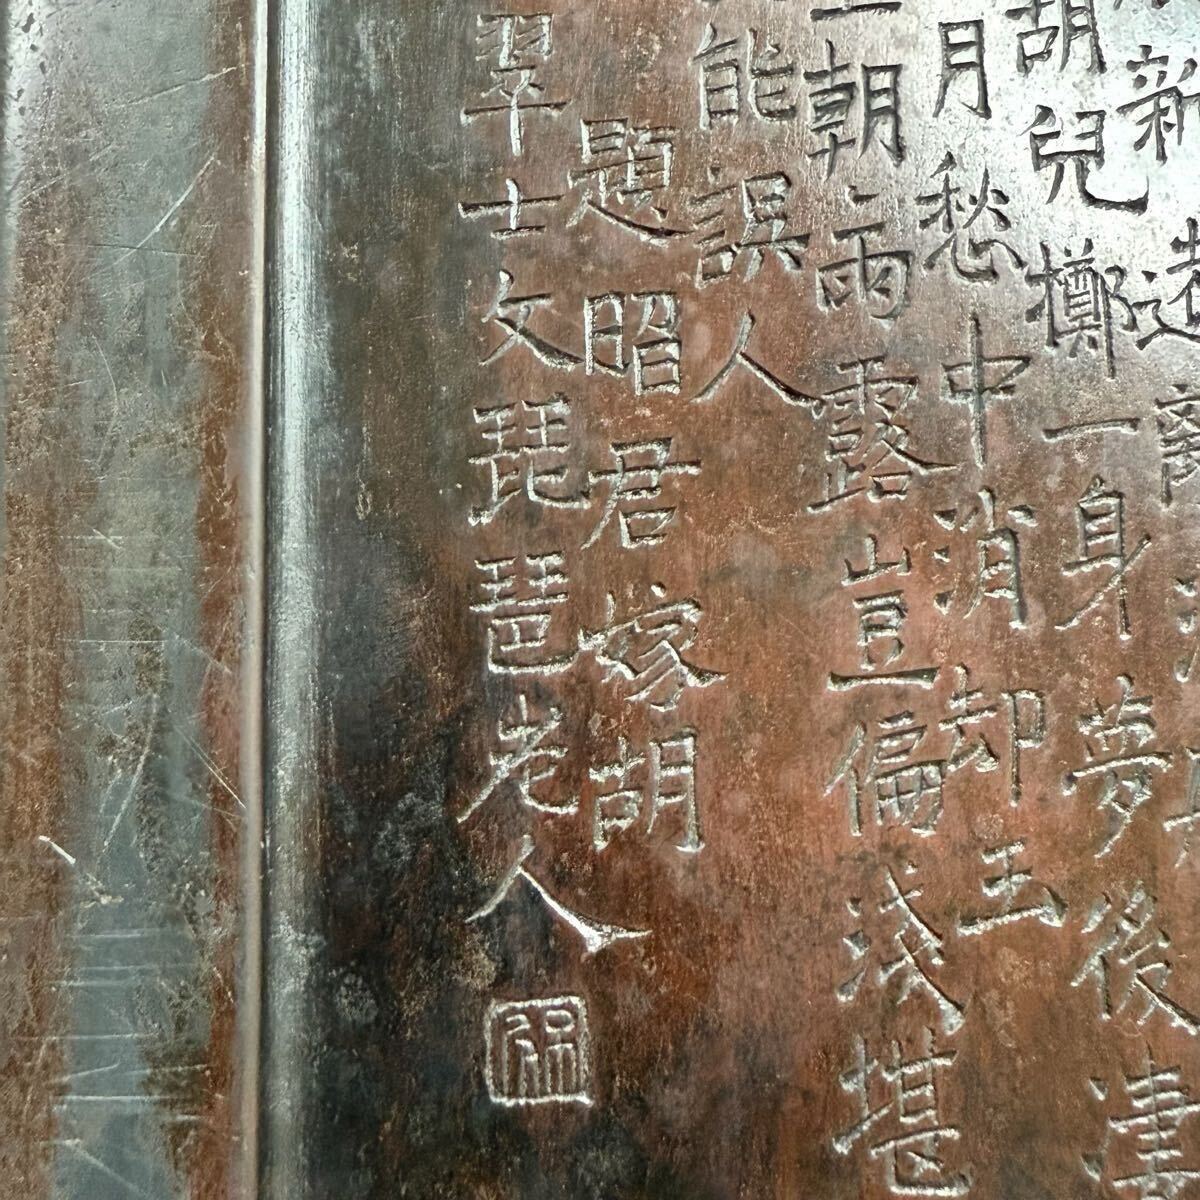 新遠離
胡兒擲一身夢後凄
月愁中消却玉
朝雨露豈偏淺堪
能誤人
題昭君嫁胡
翠士文琵琶老人